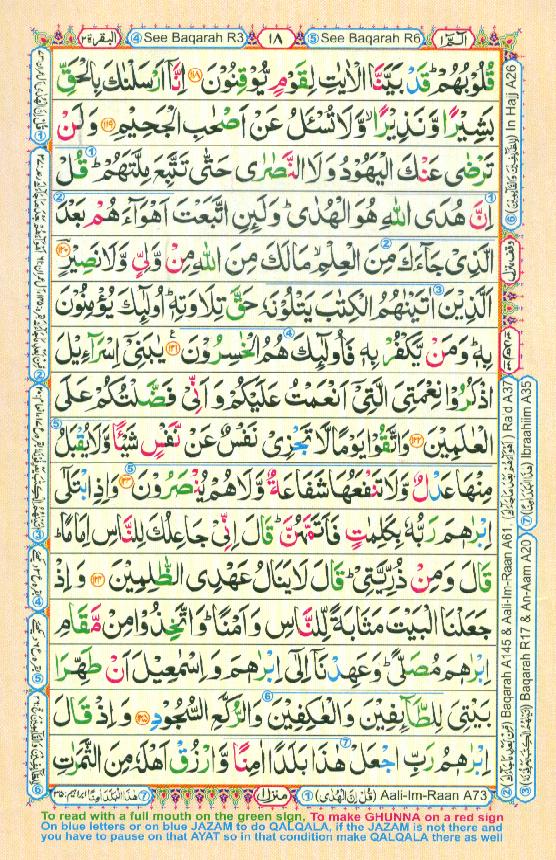 البقرة ٢
④ See Baqarah R3
١٨
⑤ See Baqarah R6
الٓمّٓ ١
قُلُوْبُهُمْ ؕ قَدْ بَيَّنَّا الْاٰيٰتِ لِقَوْمٍ يُّوْقِنُوْنَ ﴿۱۱۸﴾ اِنَّاۤ اَرْسَلْنٰكَ بِالْحَقِّ
بَشِيْرًا وَّ نَذِيْرًا ۙ وَّلَا تُسْـَٔلُ عَنْ اَصْحٰبِ الْجَحِيْمِ ﴿۱۱۹﴾ وَلَنْ
تَرْضٰى عَنْكَ الْيَهُوْدُ وَلَا النَّصٰرٰى حَتّٰى تَتَّبِعَ مِلَّتَهُمْ ؕ قُلْ
اِنَّ هُدَى اللّٰهِ هُوَ الْهُدٰى ؕ وَلَئِنِ اتَّبَعْتَ اَهْوَآءَهُمْ بَعْدَ
الَّذِيْ جَآءَكَ مِنَ الْعِلْمِ ۙ مَا لَكَ مِنَ اللّٰهِ مِنْ وَّلِيٍّ وَّلَا نَصِيْرٍ ﴿۱۲۰﴾
اَلَّذِيْنَ اٰتَيْنٰهُمُ الْكِتٰبَ يَتْلُوْنَهٗ حَقَّ تِلَاوَتِهٖ ؕ اُولٰٓئِكَ يُؤْمِنُوْنَ
بِهٖ ؕ وَمَنْ يَّكْفُرْ بِهٖ فَاُولٰٓئِكَ هُمُ الْخٰسِرُوْنَ ﴿۱۲۱﴾ يٰبَنِيْۤ اِسْرَآءِيْلَ
اذْكُرُوْا نِعْمَتِيَ الَّتِيْۤ اَنْعَمْتُ عَلَيْكُمْ وَاَنِّيْ فَضَّلْتُكُمْ عَلَى
الْعٰلَمِيْنَ ﴿۱۲۲﴾ وَاتَّقُوْا يَوْمًا لَّا تَجْزِيْ نَفْسٌ عَنْ نَّفْسٍ شَيْـًٔا وَّلَا يُقْبَلُ
مِنْهَا عَدْلٌ وَّلَا تَنْفَعُهَا شَفَاعَةٌ وَّلَا هُمْ يُنْصَرُوْنَ ﴿۱۲۳﴾ وَاِذِ ابْتَلٰٓى
اِبْرٰهٖمَ رَبُّهٗ بِكَلِمٰتٍ فَاَتَمَّهُنَّ ؕ قَالَ اِنِّيْ جَاعِلُكَ لِلنَّاسِ اِمَامًا ؕ
قَالَ وَمِنْ ذُرِّيَّتِيْ ؕ قَالَ لَا يَنَالُ عَهْدِي الظّٰلِمِيْنَ ﴿۱۲۴﴾ وَاِذْ
جَعَلْنَا الْبَيْتَ مَثَابَةً لِّلنَّاسِ وَاَمْنًا ؕ وَاتَّخِذُوْا مِنْ مَّقَامِ
اِبْرٰهٖمَ مُصَلًّى ؕ وَعَهِدْنَاۤ اِلٰٓى اِبْرٰهٖمَ وَاِسْمٰعِيْلَ اَنْ طَهِّرَا
بَيْتِيَ لِلطَّآئِفِيْنَ وَالْعٰكِفِيْنَ وَالرُّكَّعِ السُّجُوْدِ ﴿۱۲۵﴾ وَاِذْ قَالَ
اِبْرٰهٖمُ رَبِّ اجْعَلْ هٰذَا بَلَدًا اٰمِنًا وَّارْزُقْ اَهْلَهٗ مِنَ الثَّمَرٰتِ
In Hajj A26
⑥
② Baqarah A145 & Aali-Im-Raan A61, Ra'd A37
③ Baqarah R17 & An-Aam A20
⑦ Ibraahiim A35
منزل ١
① (قُلْ اِنَّ الْهُدٰى) Aali-Im-Raan A73
To read with a full mouth on the green sign, To make GHUNNA on a red sign
On blue letters or on blue JAZAM to do QALQALA, if the JAZAM is not there and
you have to pause on that AYAT so in that condition make QALQALA there as well